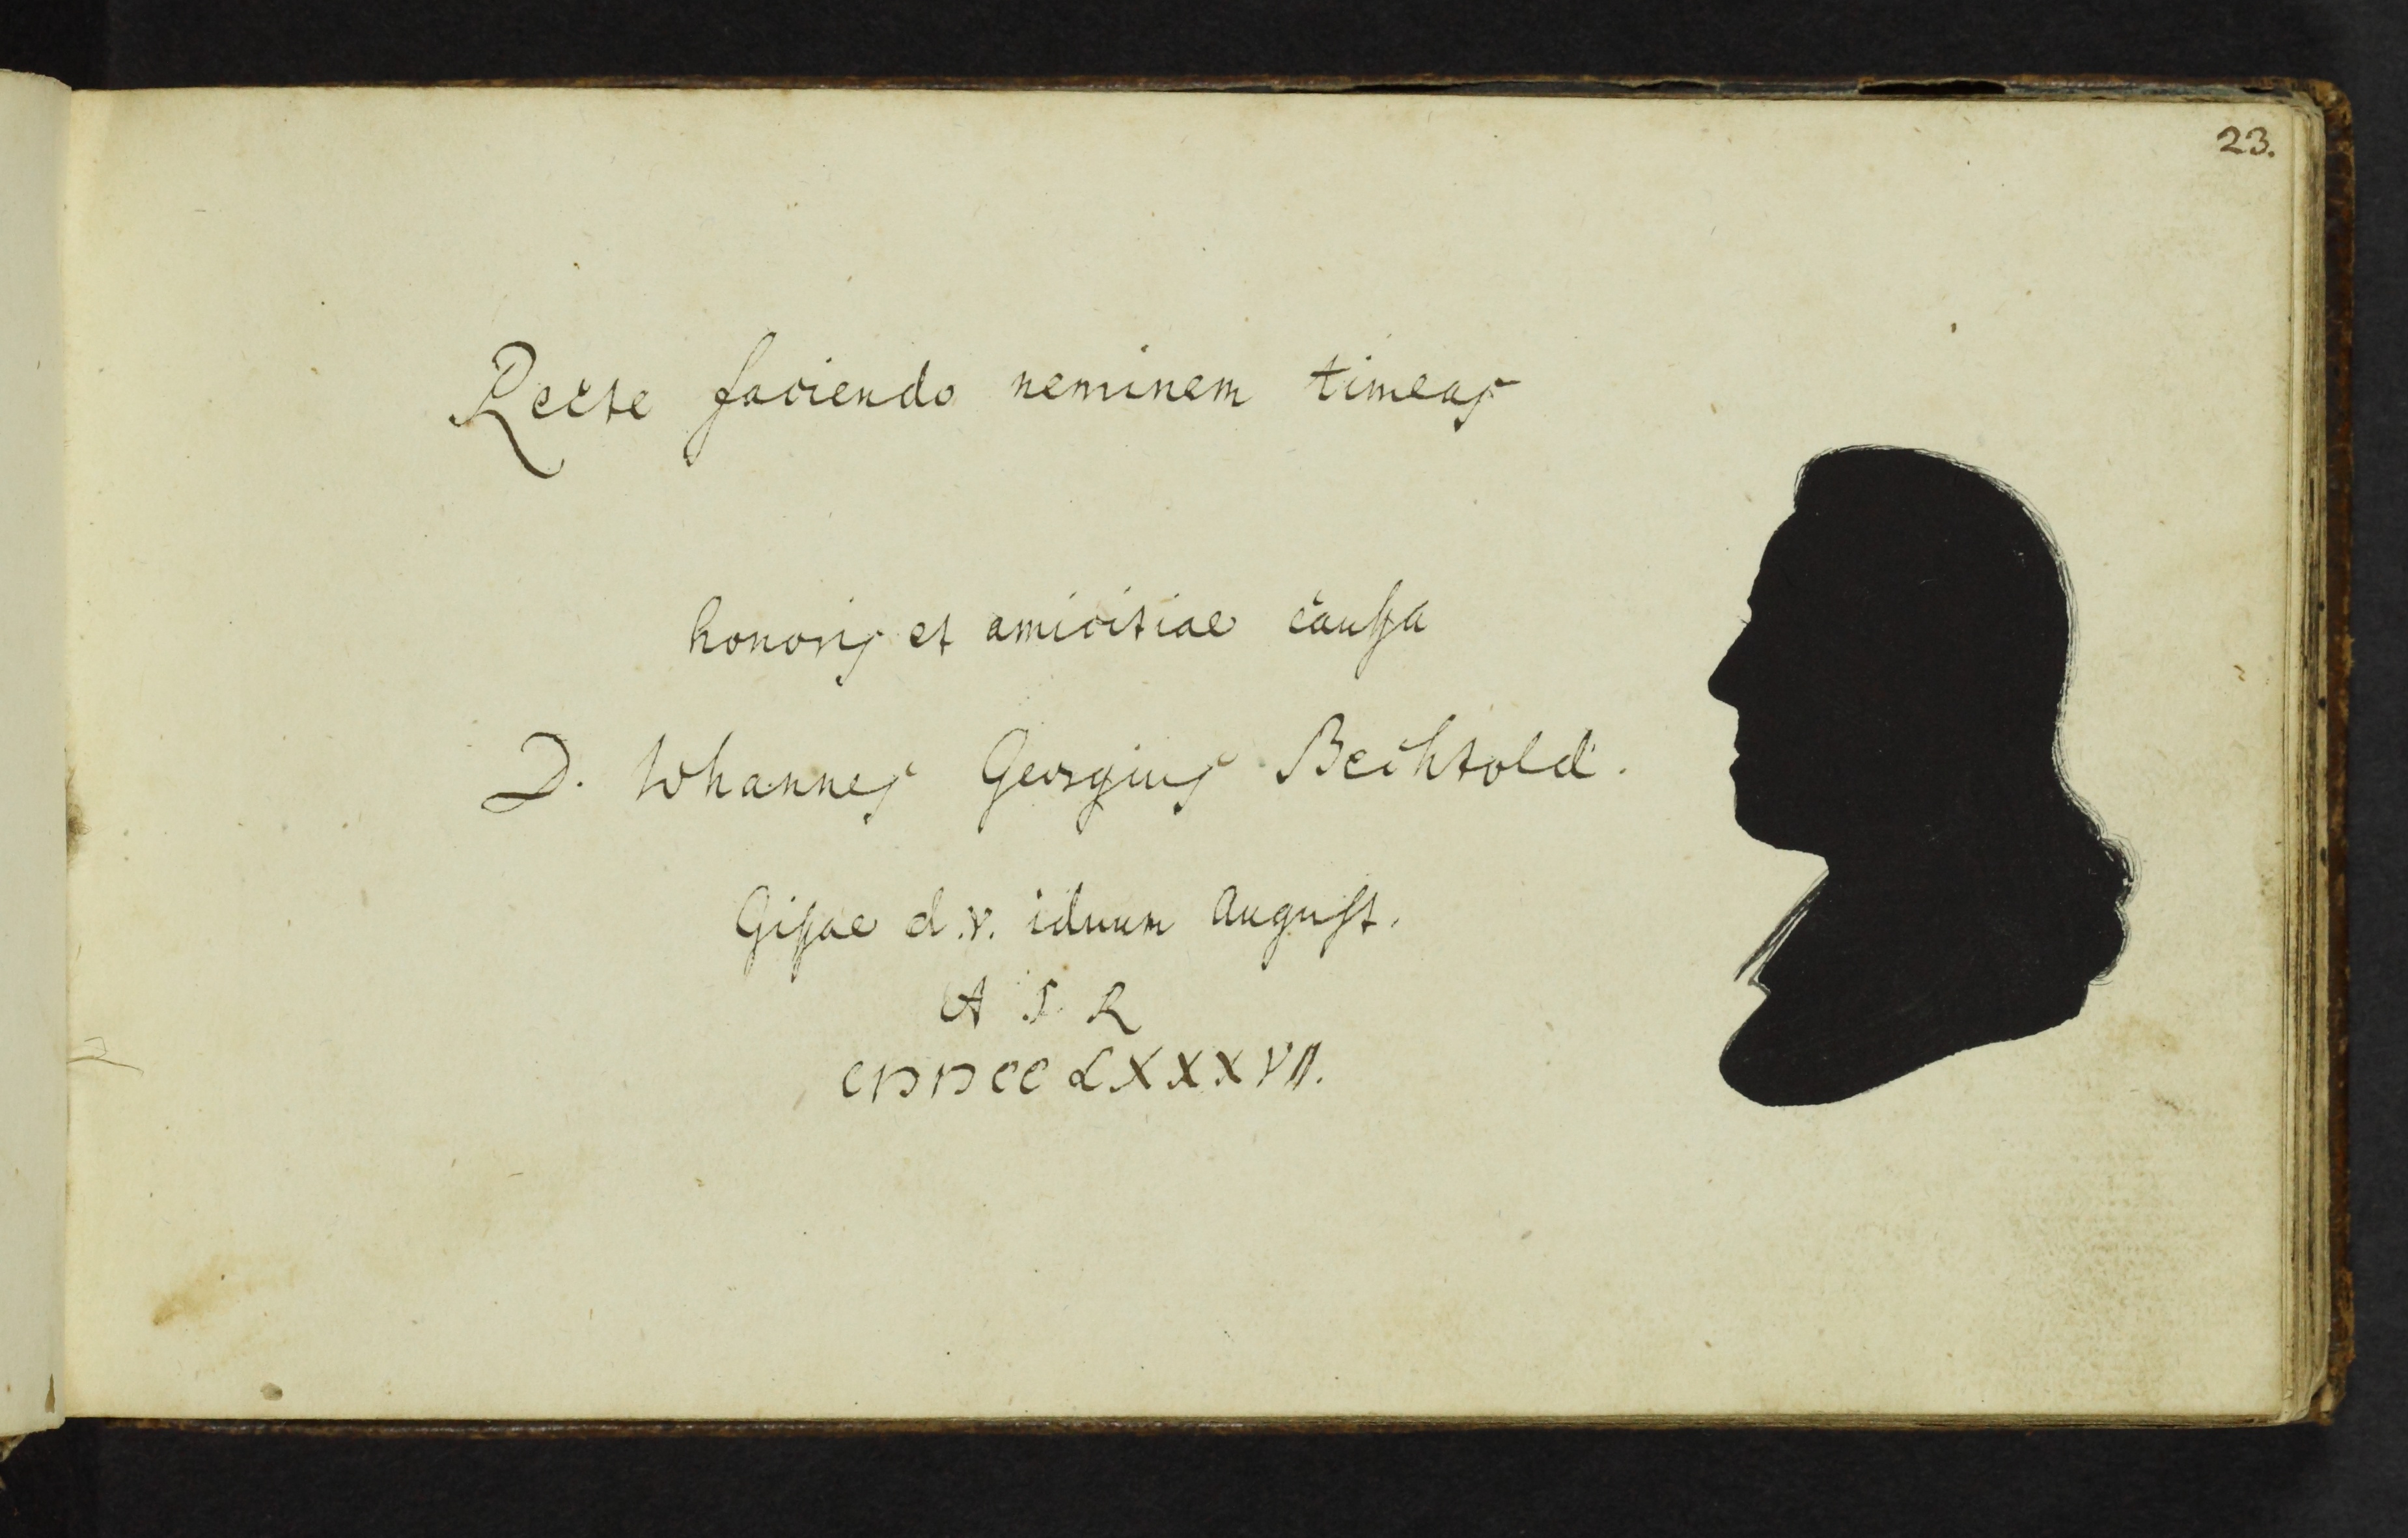 23.
Recte faciendo neminem timeas
honoris et amicitiae caussa
D. Iohannes Georgius Bechtold.
Gissae d. v. iduum August.
A S R
CIƆIƆCCLXXXVII.